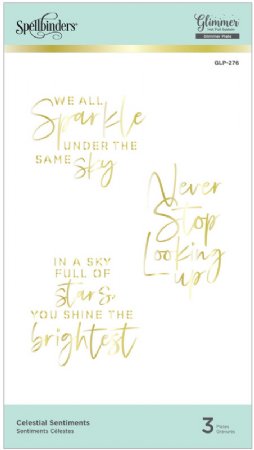 Spellbinders®
Glimmer
Hot Foil System
Glimmer Plate
GLP-276
WE ALL
Sparkle
UNDER THE
SAME
Sky
Never
Stop
Looking
up
IN A SKY
FULL OF
stars
YOU SHINE THE
brightest
Celestial Sentiments
Sentiments Célestes
3
Pieces